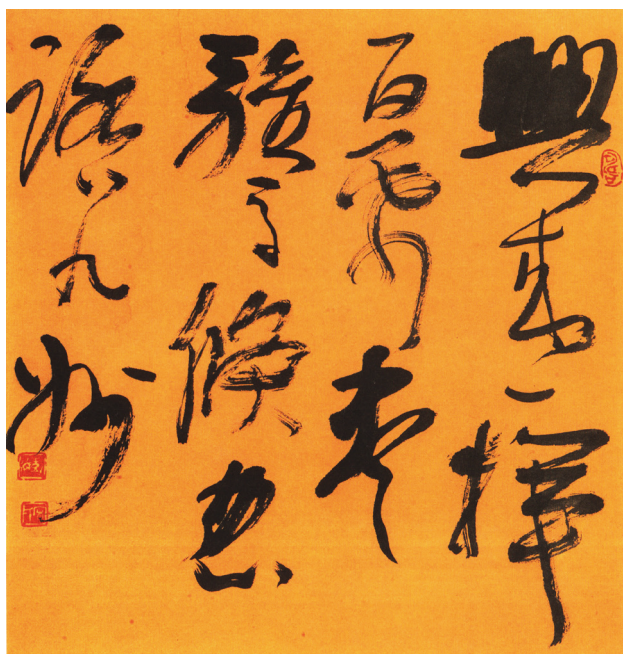 興來一揮
百紙盡
駿馬倏忽
踏九州